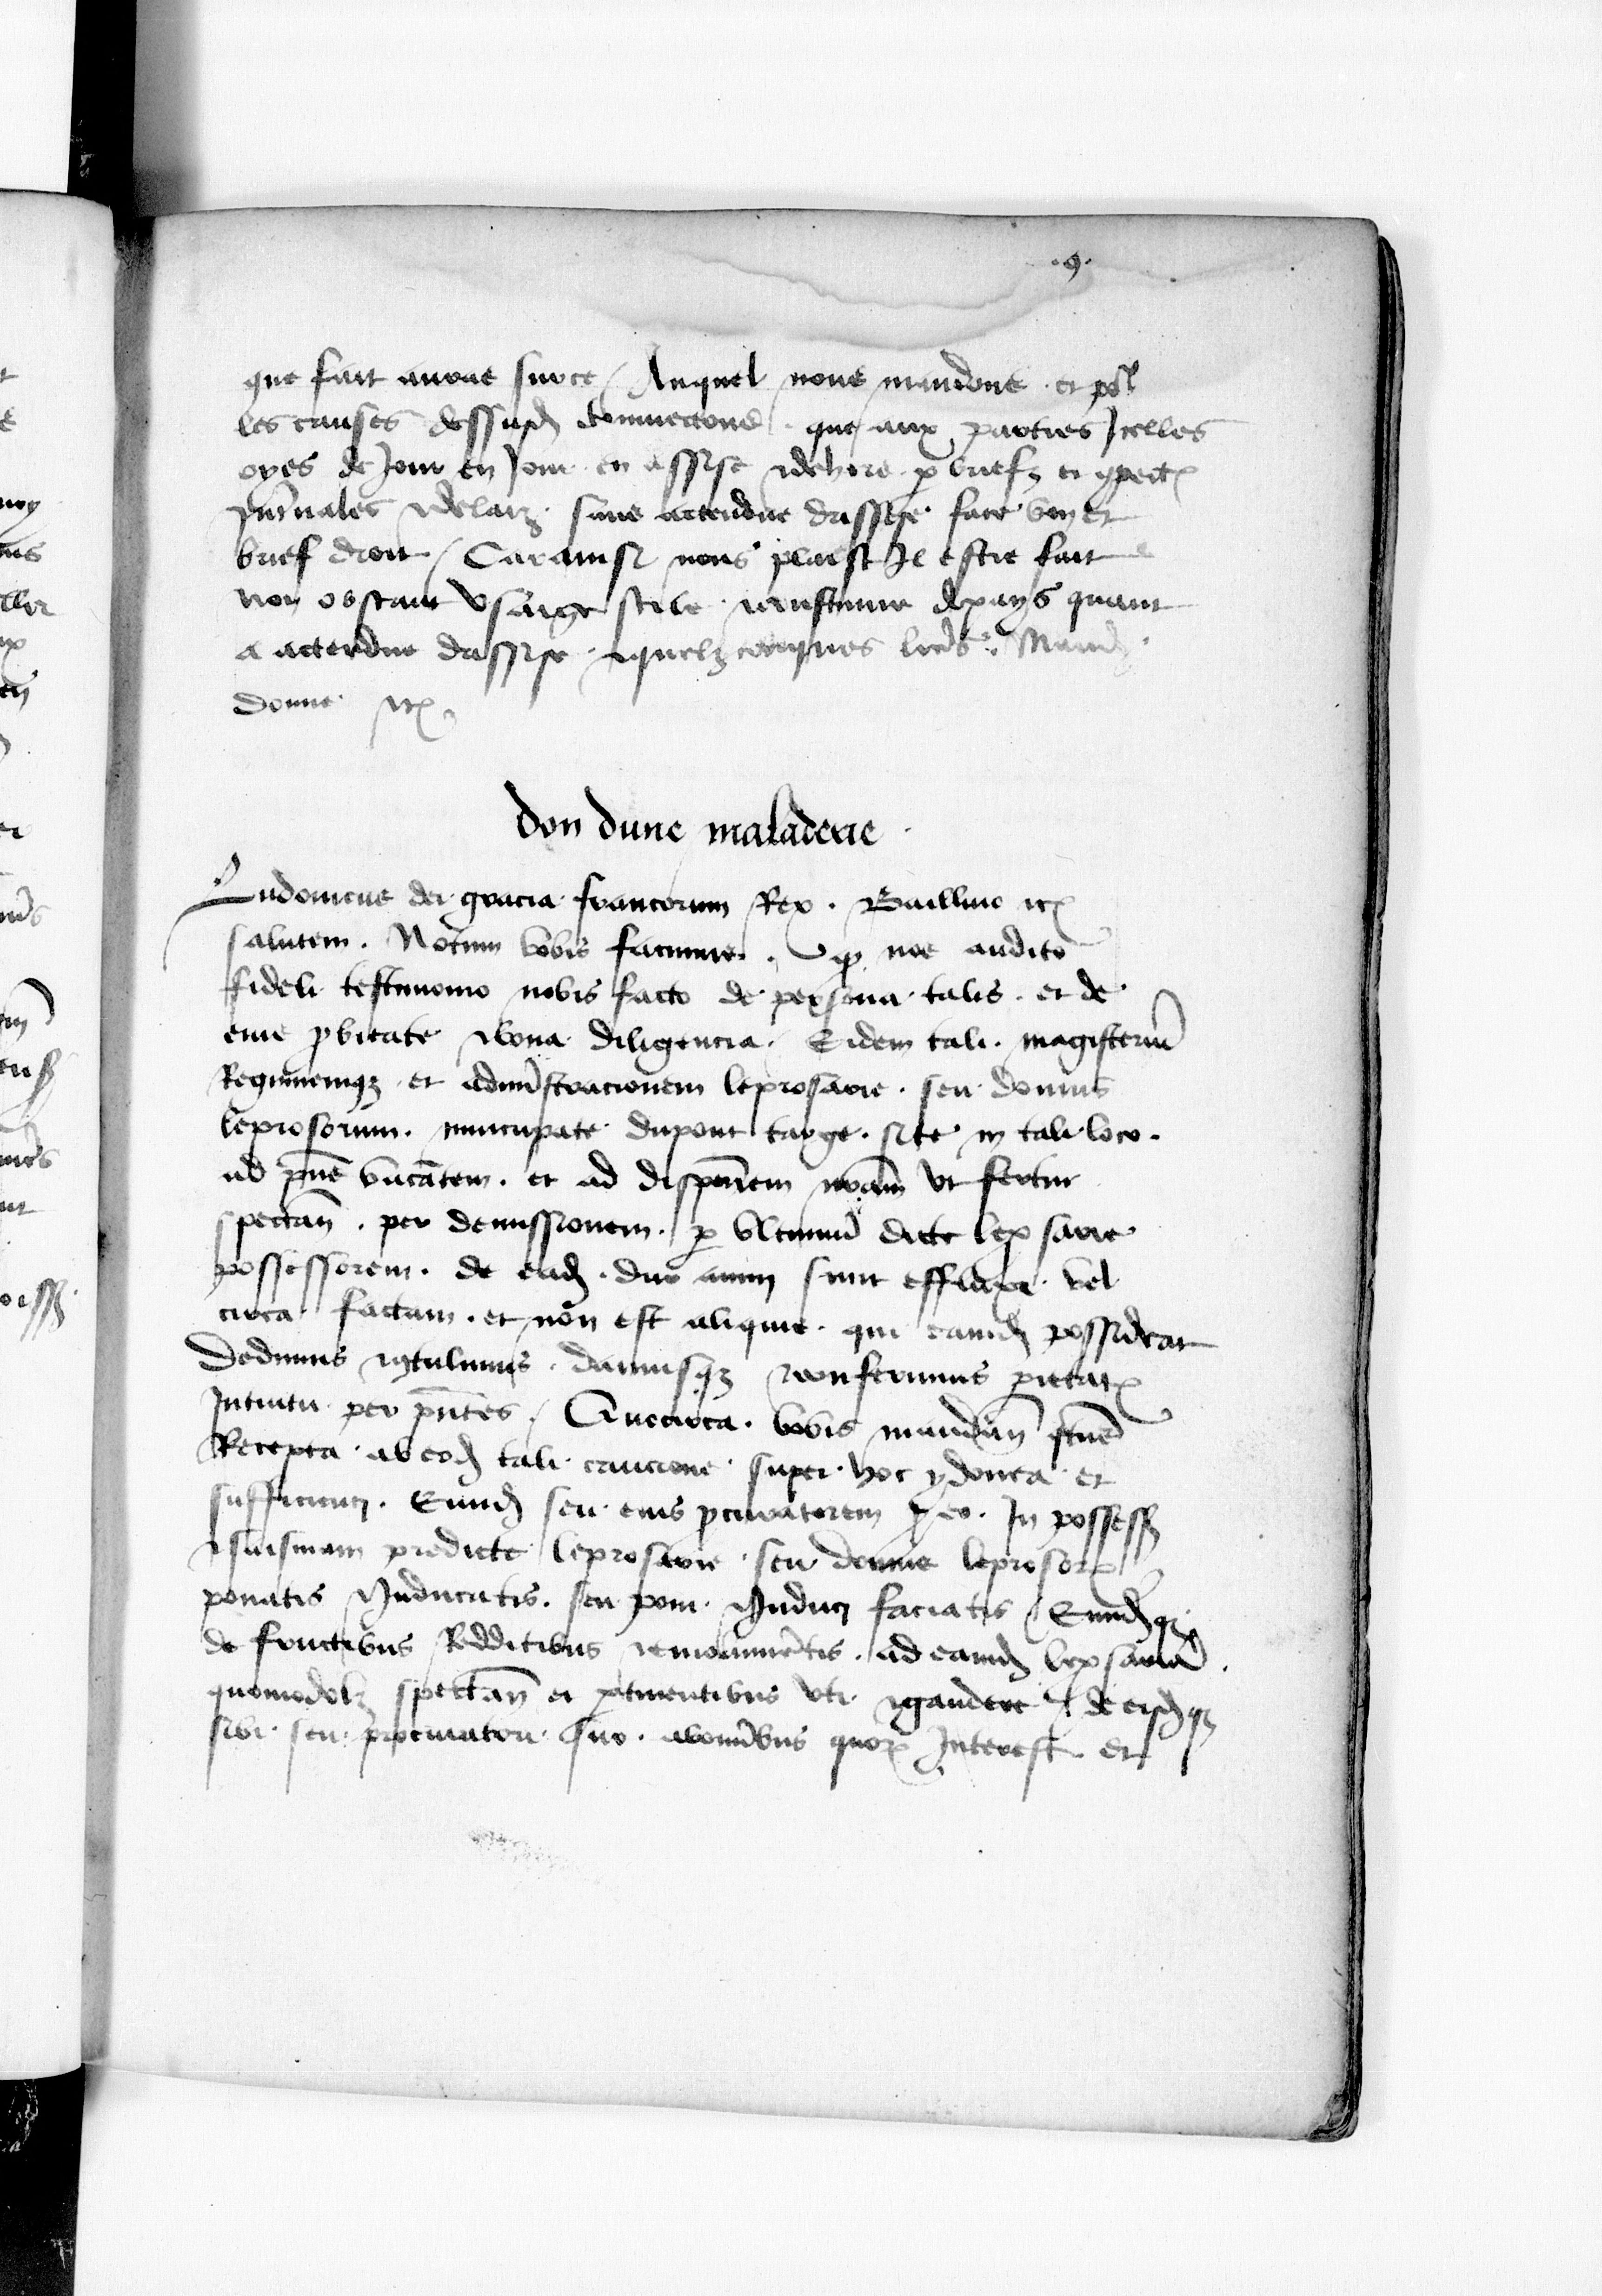 .9.
que fait aurae surce / Auquel nous mandons . et pour
les causes dessusd commectons . que aux parties Jcelles
oyes de Jour en Jour en assise et dehors . p briefz et
sans actendue dassise face bon et
brief droit / Car ainsi nous plaist Il estre fait
non obstant Usaige stile et coustume de pays quant
a actendue dassise . et quelzconques lres . Mand
donne etc
don dune maladerie .
Ludovicus dei gracia francorum Rex . Baillivo etc
salutem . Notum vobis facimus . q nos audito
fideli testimonio nobis facto de persona talis . et de
eius probitate et bona diligencia . Eidem tali . magisteriu
Regimenq et administracionem leprosarie . seu domus
leprosorum . nuncupate dupont targe . site in tali loco .
ad pns vacatem . et ad disponem nram ut fertur
spectan . per demissionem . p ultimu dicte lepsarie
possessorem . de ead . duo anni sunt effluxi . vel
circa factam . et non est aliquis . qui eamd possideat
Dedimus et contulimus . damusq et conferimus pietat
Intuitu per pntes / Quocirca . vobis mandam
Recepta ab eod tali caucione super hoc ydonea et
sufficienti . Eumd seu eius procuratorem p eo . In possess
et saisinam predicte leprosarie seu domus leprosor
ponatis et Inducatis . seu poni et Induci faciatis / Eumdq
de fructibus Redditibus et emolumetis . ad eamd lepsaria .
quomodolz spectan et ptinentibus uti et gaudere . de eisdq
sibi seu procuratori suo . ab omibus quor Interest . et